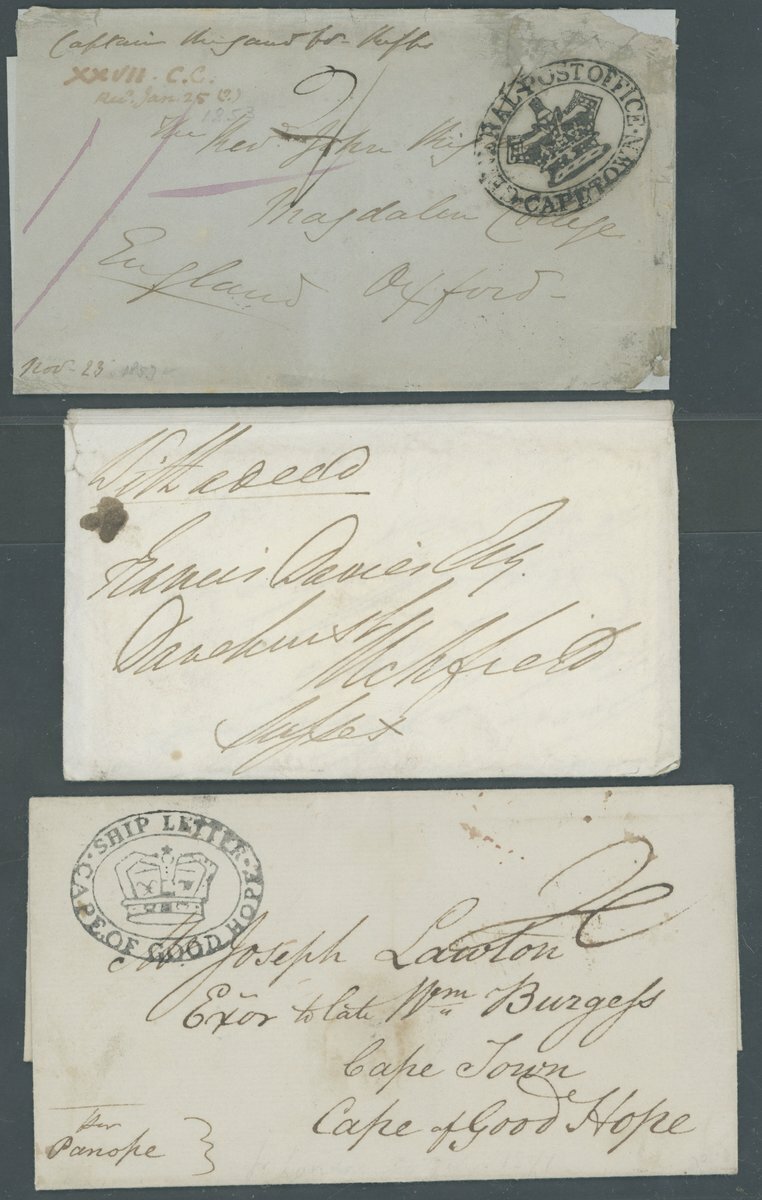 Captain
XXVII. C.C.
Rec. Jan. 25 (?)
1853
2/
GENERAL·POST OFFICE·
·CAPETOWN·
The Revd. John
Magdalen College
England Oxford
Nov. 23 1853
With a deed
Francis Davies Esq.
Uckfield
Sussex
·SHIP LETTER·
CAPE OF GOOD HOPE
Mr. Joseph Lawton
Exor to late Wm Burgess
Cape Town
Cape of Good Hope
Per
Panope